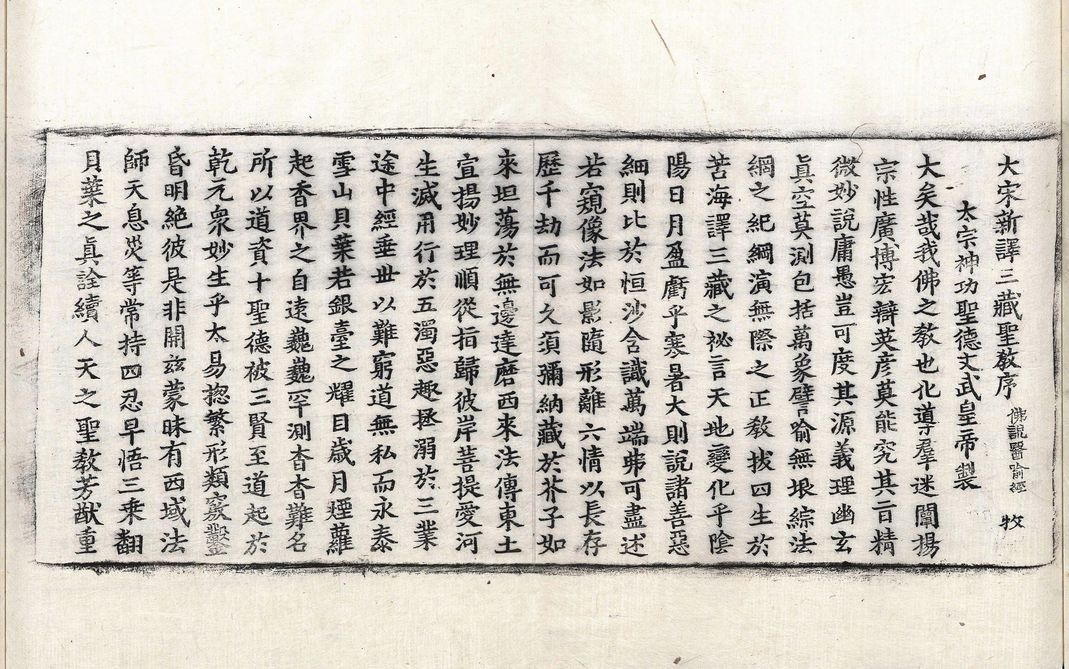 大宋新譯三藏聖教序 佛說醫喻經 牧
太宗神功聖德文武皇帝製
大矣哉我佛之教也化導羣迷闡揚
宗性廣博宏辯英彦莫能究其旨精
微妙說庸愚豈可度其源義理幽玄
真空莫測包括萬象譬喻無垠綜法
網之紀綱演無際之正教拔四生於
苦海譯三藏之祕言天地變化乎陰
陽日月盈虧乎寒暑大則說諸善惡
細則比於恒沙含識萬端弗可盡述
若窺像法如影隨形離六情以長存
歷千劫而可久須彌納藏於芥子如
來坦蕩於無邊達磨西來法傳東土
宣揚妙理順從指歸彼岸菩提愛河
生滅用行於五濁惡趣拯溺於三業
途中經垂世以難窮道無私而永泰
雪山貝葉若銀臺之耀目歲月煙蘿
起香界之自遠巍巍罕測杳杳難名
所以道資十聖德被三賢至道起於
乾元衆妙生乎太易揔繁形類竅鑿
昏明絕彼是非開茲蒙昧有西域法
師天息災等常持四忍早悟三乘翻
貝葉之真詮續人天之聖教芳猷重